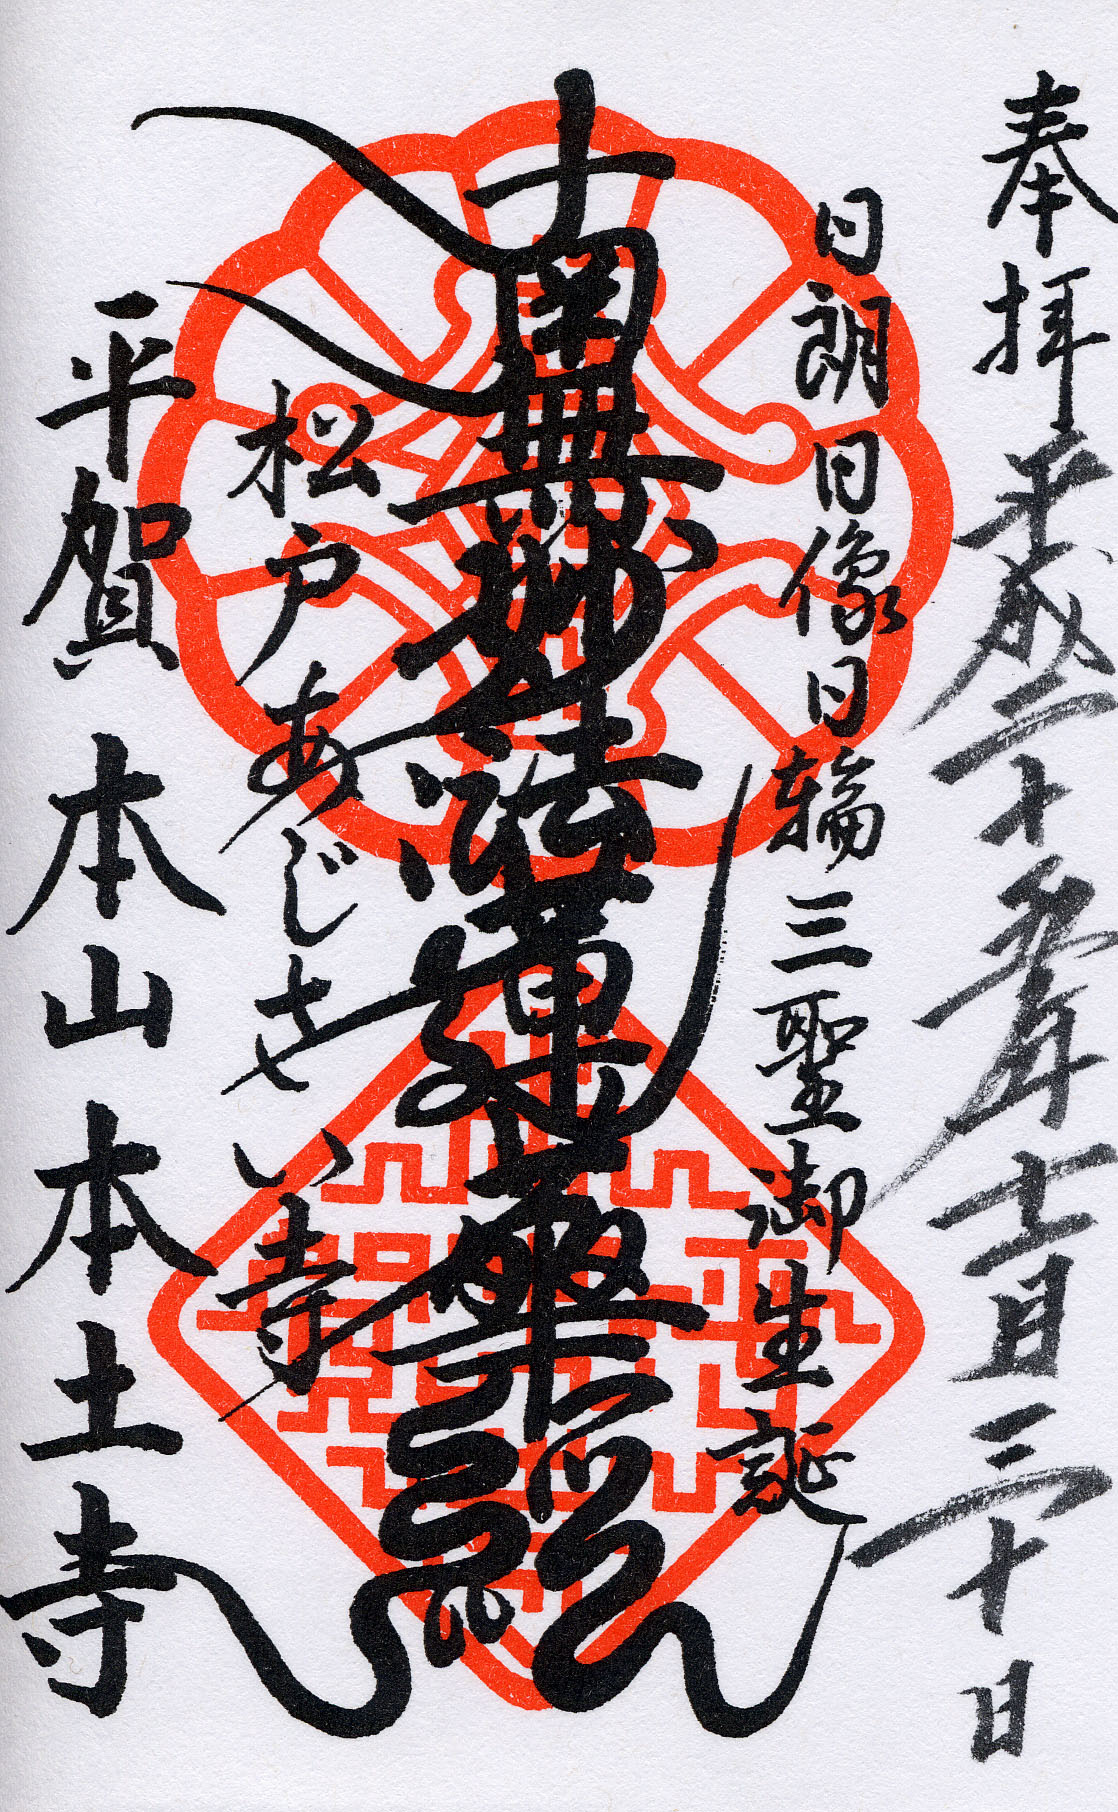 奉拝 平成二十年月三十日
日朗日像日輪三聖御生誕
南無妙法蓮華経
松戸あじさい寺
平賀 本山本土寺